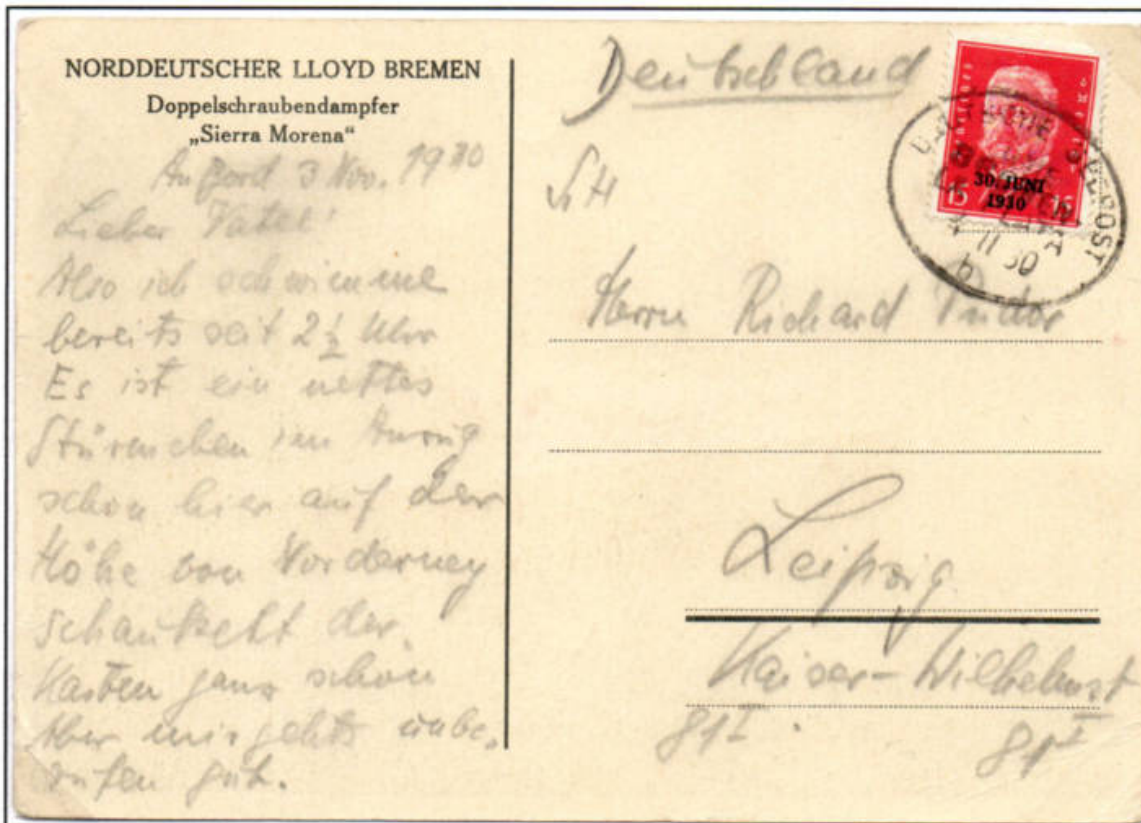 NORDDEUTSCHER LLOYD BREMEN
Doppelschraubendampfer
„Sierra Morena“
An Bord 3 Nov. 1930
Lieber Vater!
Also ich schwimme
bereits seit 2½ Uhr
Es ist ein nettes
Stürmchen im Anzug
schon hier auf der
Höhe von Norderney
schaukelt der
Kasten ganz schön
Aber mir gehts unbe-
rufen gut.
Deutschland
15 15
30. JUNI
1930
DEUTSCHE SEEPOST
11 30
b
Herrn Richard Tudor
Leipzig
Kaiser-Wilhelmst
81 I. 81 I